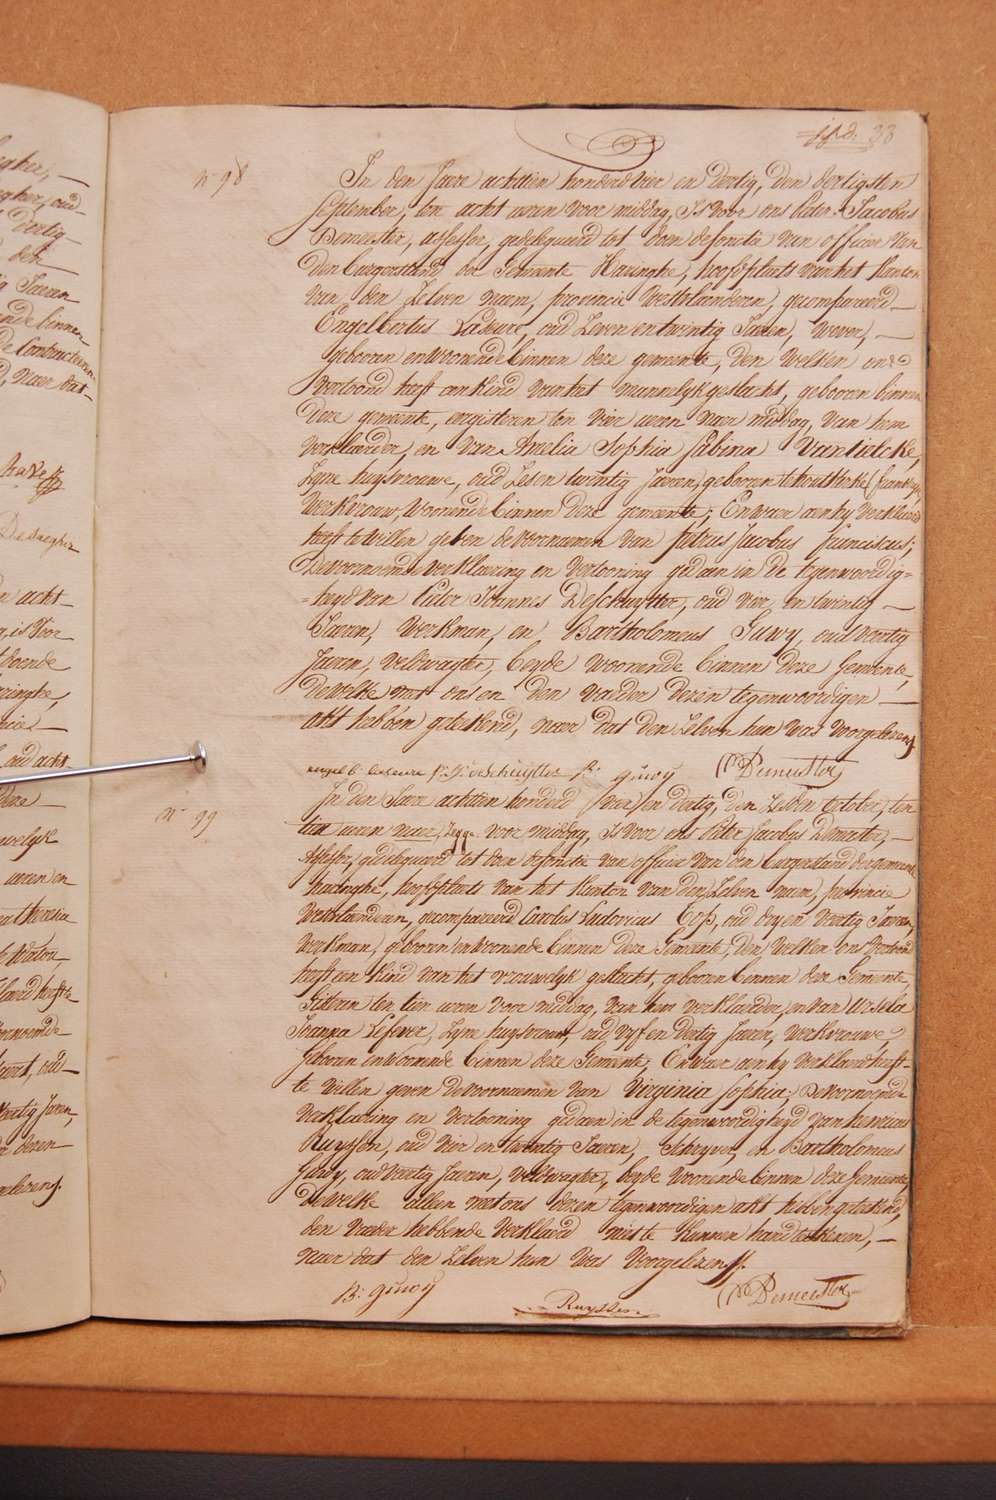 33
n° 98
In den Jaere achttien honderd vier en dertig, den dertigsten
September, ten acht uren voor middag, Is voor ons Pieter Jacobus
Demeester, assessor, gedelegueerd tot doen de fonctie van officier van
den Burgerstand der Gemeente Haringhe, hoofdplaets van het Kanton
van den Zelven naem, provincie Westvlaanderen, gecompareerd
Engelbertus Laseure, oud Zeven en twintig Jaeren, Wever,
Geboren en woonende binnen deze gemeente, den welken ons
vertoond heeft een kind van het mannelyk geslacht, geboren binnen
deze gemeente, eergisteren ten vier uren naer middag, van hem
verklaerder, en van Amelia Sophia Sabina Vantielcke,
Zyne huysvrouwe, oud Zes en twintig Jaeren, geboren te houtkerke (frankryk)
Werkvrouw, woonende binnen deze gemeente; En waer aen hy verklaerd
heeft te willen geven de voornamen van Petrus Jacobus franciscus;
De voornoemde verklaering en vertooning gedaen in de tegenwoordig=
=heyd van Pieter Joannes Deschuytter, oud vier en twintig
Jaeren, Werkman, en Bartholomeus Guwy, oud veertig
Jaeren, veldwagter, beyde woonende binnen deze Gemeente,
dewelke met ons en den vader dezen tegenwoordigen
akt hebben geteekend, naer dat den Zelven hun was voorgelezen
engel b. laseure p. J. deschuytter B: guwy PDemeester
n° 99
In den Jaere achttien honderd vier en dertig, den Zesden October, ten
tien uren naer Zegge voor middag, Is voor ons Pieter Jacobus Demeester,
Assessor, gedelegueerd tot doen de fonctie van officier van den Burgerstand der gemeente
haringhe, hoofdplaets van het Kanton van den Zelven naem, provincie
Westvlaanderen, gecompareerd Carolus Ludovicus Top, oud dry en veertig Jaeren,
Werkman, geboren en woonende binnen deze Gemeente, den welken ons vertoond
heeft een Kind van het vrouwelyk geslacht, geboren binnen deze Gemeente,
Gisteren ten tien uren voor middag, van hem verklaerder, en van Urselia
Joanna Lefever, Zyne huysvrouw, oud vyf en dertig Jaeren, werkvrouwe,
Geboren en woonende binnen deze Gemeente, En waer aen hy verklaerd heeft
te willen geven de voornaemen van Virginia Sophia; De voornoemde
verklaering en vertooning gedaen in de tegenwoordigheyd van henricus
Ruyssen, oud vier en twintig Jaeren, Schryver, en Bartholomeus
Guwy, oud veertig Jaeren, veldwagter, beyde woonende binnen deze Gemeente,
dewelke alleen met ons dezen tegenwoordigen akt hebben geteekend,
den vader hebbende verklaerd niet te kunnen handteekenen,
naer dat den Zelven hun was voorgelezen
B: guwy Ruyssen PDemeester